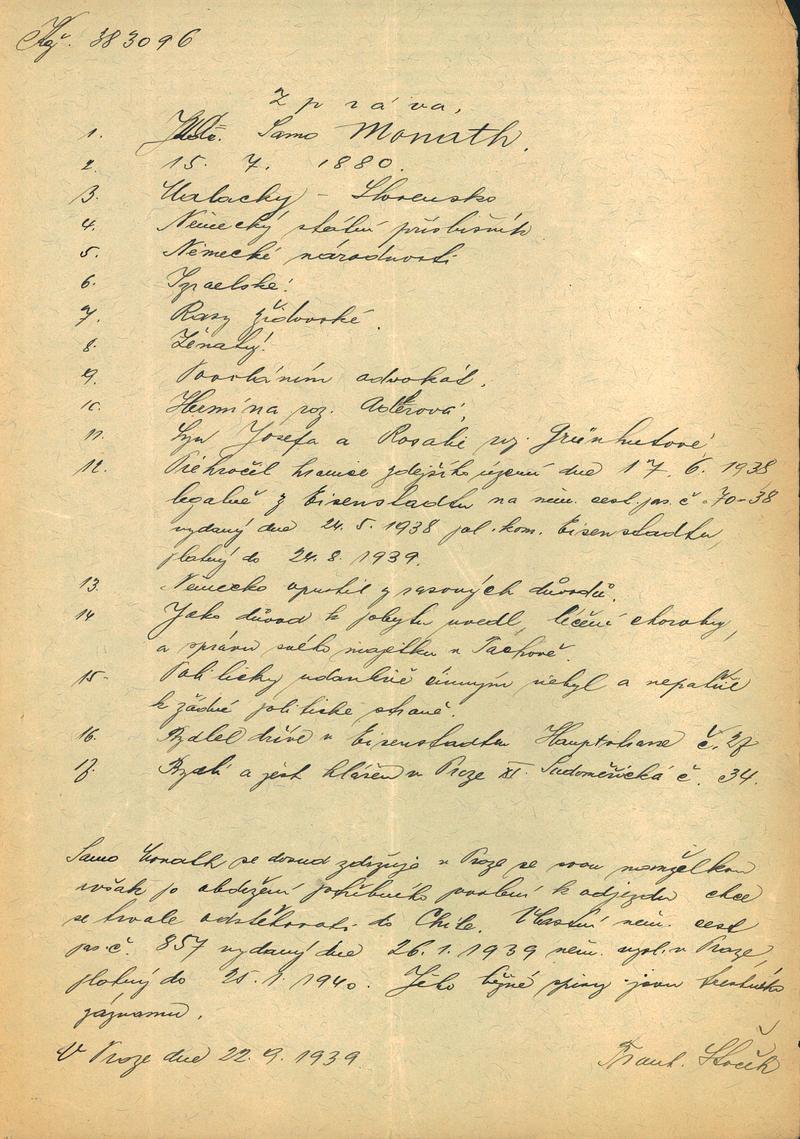 383096
Zpráva,
1. Samo Monath.
2. 15. 7. 1880.
3. Malacky - Slovensko
4. Německý státní příslušník
5. Německé národnosti
6. Izraelské!
7. Rasy židovské.
8. Ženatý!
9. Povoláním advokát.
10. Hermína roz. Adlerová,
11. Syn Josefa a Rosalie roz. Grünhutové
12. Překročil hranice zdejšího území dne 17. 6. 1938
legálně z Eisenstadtu na něm. cest. pas. č. 70-38
vydaný dne 24. 5. 1938 pol. kom. Eisenstadtu,
platný do 24. 8. 1939.
13. Německo opustil z rasových důvodů.
14 Jako důvod k pobytu uvedl, léčení choroby,
a správu svého majetku v Tachově.
15- Politicky udavně činným nebyl a nepatřil
k žádné politické straně.
16. Bydlel dříve v Eisenstadtu Hauptstrasse č. 27
17. Bydlí a jest hlášen v Praze XI. Sudoměřická č. 34.
Samo Monath se dosud zdržuje v Praze se svou manželkou
však po obdržení potřebného povolení k odjezdu chce
se trvale odstěhovati do Chile. Vlastní něm. cest
pas. č. 857 vydaný dne 26. 1. 1939 něm. vysl. v Praze,
platný do 25. 1. 1940. Jeho běžné spisy jsou
záznamu.
V Praze dne 22. 9. 1939.
Frant.